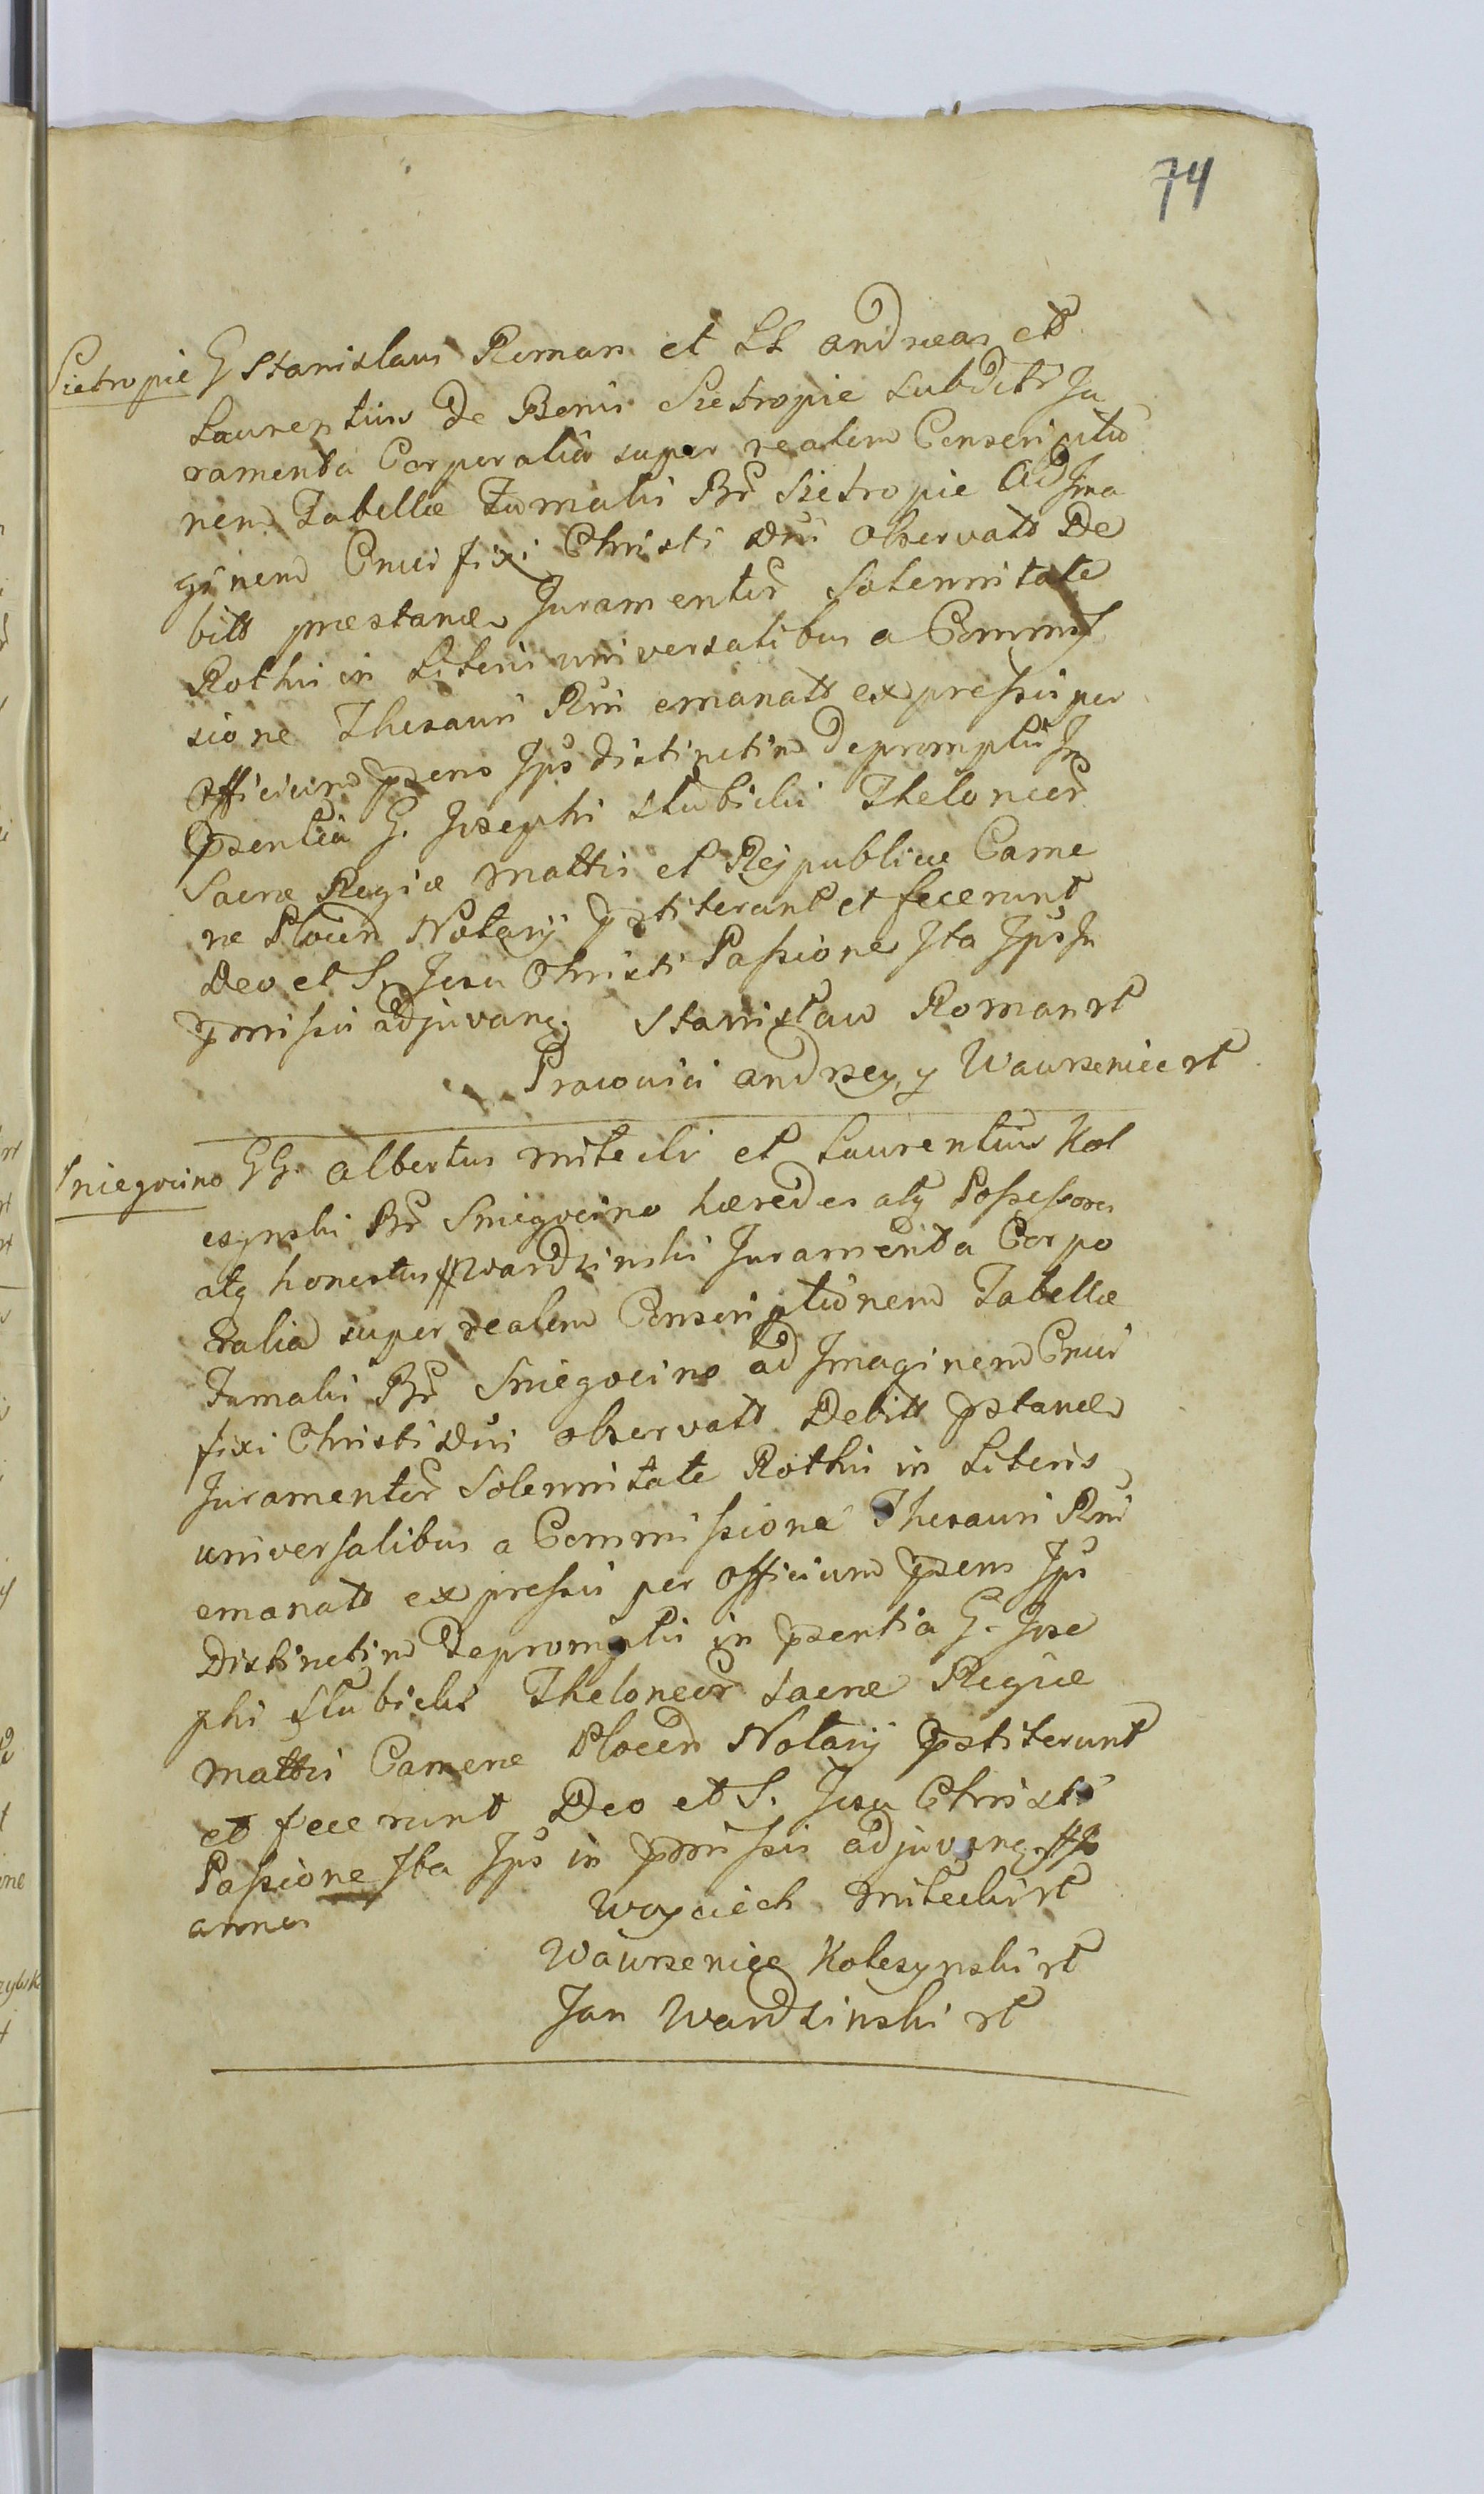 74
Sietropie G Stanislaus Roman et LL andreas et
Laurentius De Bonis Sietropie subditi Ju
ramenta Corporalia super realem Conscriptio
nem Tabellæ Fumalis Br Sietropie Ad Ima
ginem Crucifixi Christi Dni observatt De
bitt præstandæ Juramentor Solennitate
Rothis in Literis universalibus a Commis
sione Thesauri Rni emanatt expressis per
officium pzens Ips distinctim depromptis In
pzentia G. Josephi Slubicki Theloneor
Sacræ Regiæ Mattis et Reipublicæ Came
ræ Plocen Notarij pstiterunt et fecerunt
Deo et S. Jesu Christi Passione Ita Ips In
pmissis adjuvang. Stanisław Roman rt
Pracowici andrzey y Wawrzeniec rt
Sniegocino GG. albertus Mitecki et Laurentius Kol
czynski Br Sniegocino hæredes atq Possessores
atq honestus Wardzinski Juramenta Corpo
ralia super realem Conscriptionem Tabellæ
Fumalis Br Sniegocino ad Imaginem Cruci
fixi Christi Dni observatt Debitt pstandæ
Juramentor Solennitate Rothis in Literis
universalibus a Commissione Thesauri Rni
emanatt expressis per officium pzens Ips
Distinctim depromptis in pzentia G. Jose
phi Slubicki Theloneor Sacræ Regiæ
Mattis Cameræ Plocen Notarij pstiterunt
et fecerunt Deo et S. Jesu Christi
Passione Ita Ips in pmissis adjuvang.
Woyciech Mitecki rt
Wawrzeniec Kolczynski rt
Jan Wardzinski rt